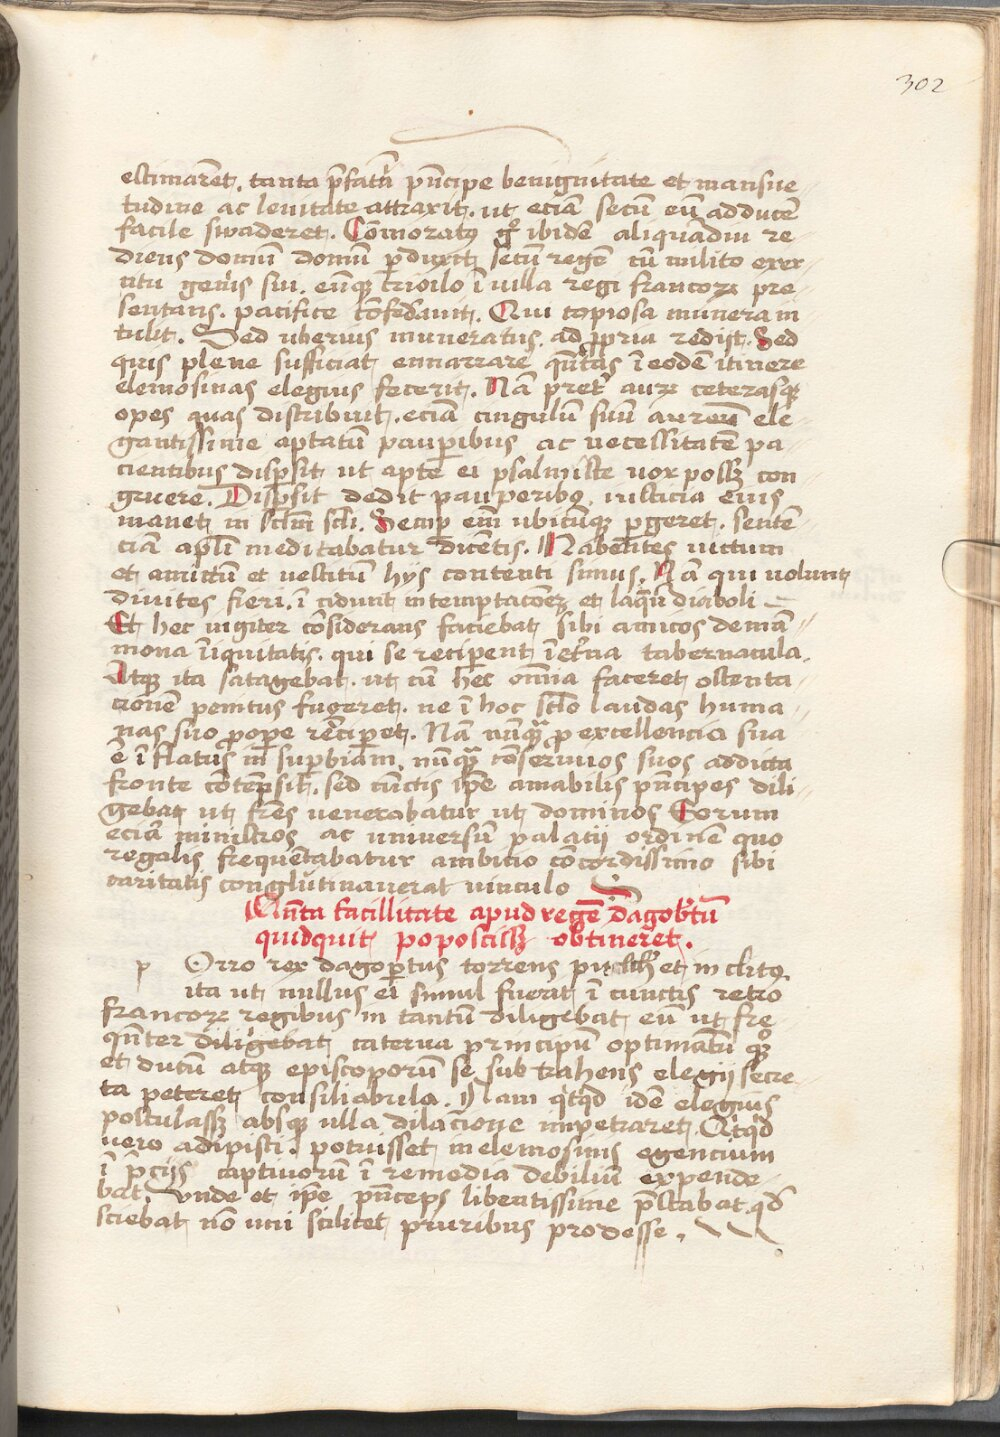 302
estimaret̄. tanta p̄fatū p̄ncipe benignitate et mansue
tudine ac lenitate attraxit. ut eciā secū eū adducē
facile swaderet. Cōmoratꝰ gͦ ibidē aliquādiu re
diens domū domū ꝑduxit secū regē cū milito exer
citu gen̄is sui. eūqꝫ crioilo ī uilla regi francoꝝ pre
sentans. pacifice cōfedauit. Qui copiosa munera in
tulit. Sed uberius muneratus. ad ꝓpria redijt. Sed
quis plene sufficiat ennarrare quātas ī eodē itinere
elemosinas elegius fecerit. Nā pret̄ auꝝ ceterasqꝫ
opes quas distribuit. eciā cingulū suū aureū ele
gantissime aptatū pauꝑibus ac necessitatē pa
cientibus disꝑsit ut apte ei psalmiste uox possꝫ con
gruere. Disꝑsit dedit pauperibꝰ. iusticia eius
manet in sclm̄ scli. Semꝑ em̄ ubicūqꝫ ꝑgeret. sentē
ciā apl̄i meditabatur dicētis. Habentes uictum
et amictū et uestitū hys contenti simus. Nā qui uolunt
diuites fieri. ī cidunt in temptacōeꝫ et laqueū diaboli
Et hec iugiter cōsiderans faciebat sibi amicos de mā
mona īiquitatis. qui se reciꝑent ī et̄na tabernacula.
Atqꝫ ita satagebat. ut cū hec om̄ia faceret ostenta
cionē penitus fugeret. ne ī hoc sclo laudas huma
nas suo ꝓpe rēciꝑet. Nā nūqꝫ ꝓ excellencia sua
ē ī flatus in suꝑbiam. nūqꝫ cōseruos suos addicta
fronte cōtēpsit. sed cūctis ip̄e amabilis p̄ncipes dili
gebat ut fr̄es uenerabatur ut dominos Eorum
eciā ministros ac uniuersū palatij ordinē quo
regalis frequētabatur ambicio cōcordissimo sibi
caritatis conglūtinauerat uinculo
Qn̄ta facillitate apud regē dagobtū
quidquit poposcissꝫ obtineret.
p Orro rex dagoꝑtus torrens pulchͬ et inclitꝰ
ita ut nullus ei simul fuerat ī cunctis retro
francoꝝ regibus in tantū diligebat eū ut fre
qn̄ter diligebat caterua principū optimatū qꝫ
et ducū atqꝫ episcoporū se subtrahens elegij secre
ta peteret consiliabula. Nam qͥtqͥd idē elegius
postulassꝫ absqꝫ ulla dilacione impetraret. Qͥtqͥd
uero adipisci. potuisset in elemosinis egencium
ī p̄cijs captiuorū ī remedia debiliū expende
bat. Vnde et ip̄e p̄nceps libentissime p̄stabat. qd̄
sciebat nō uni scilicet pluribus prodesse.